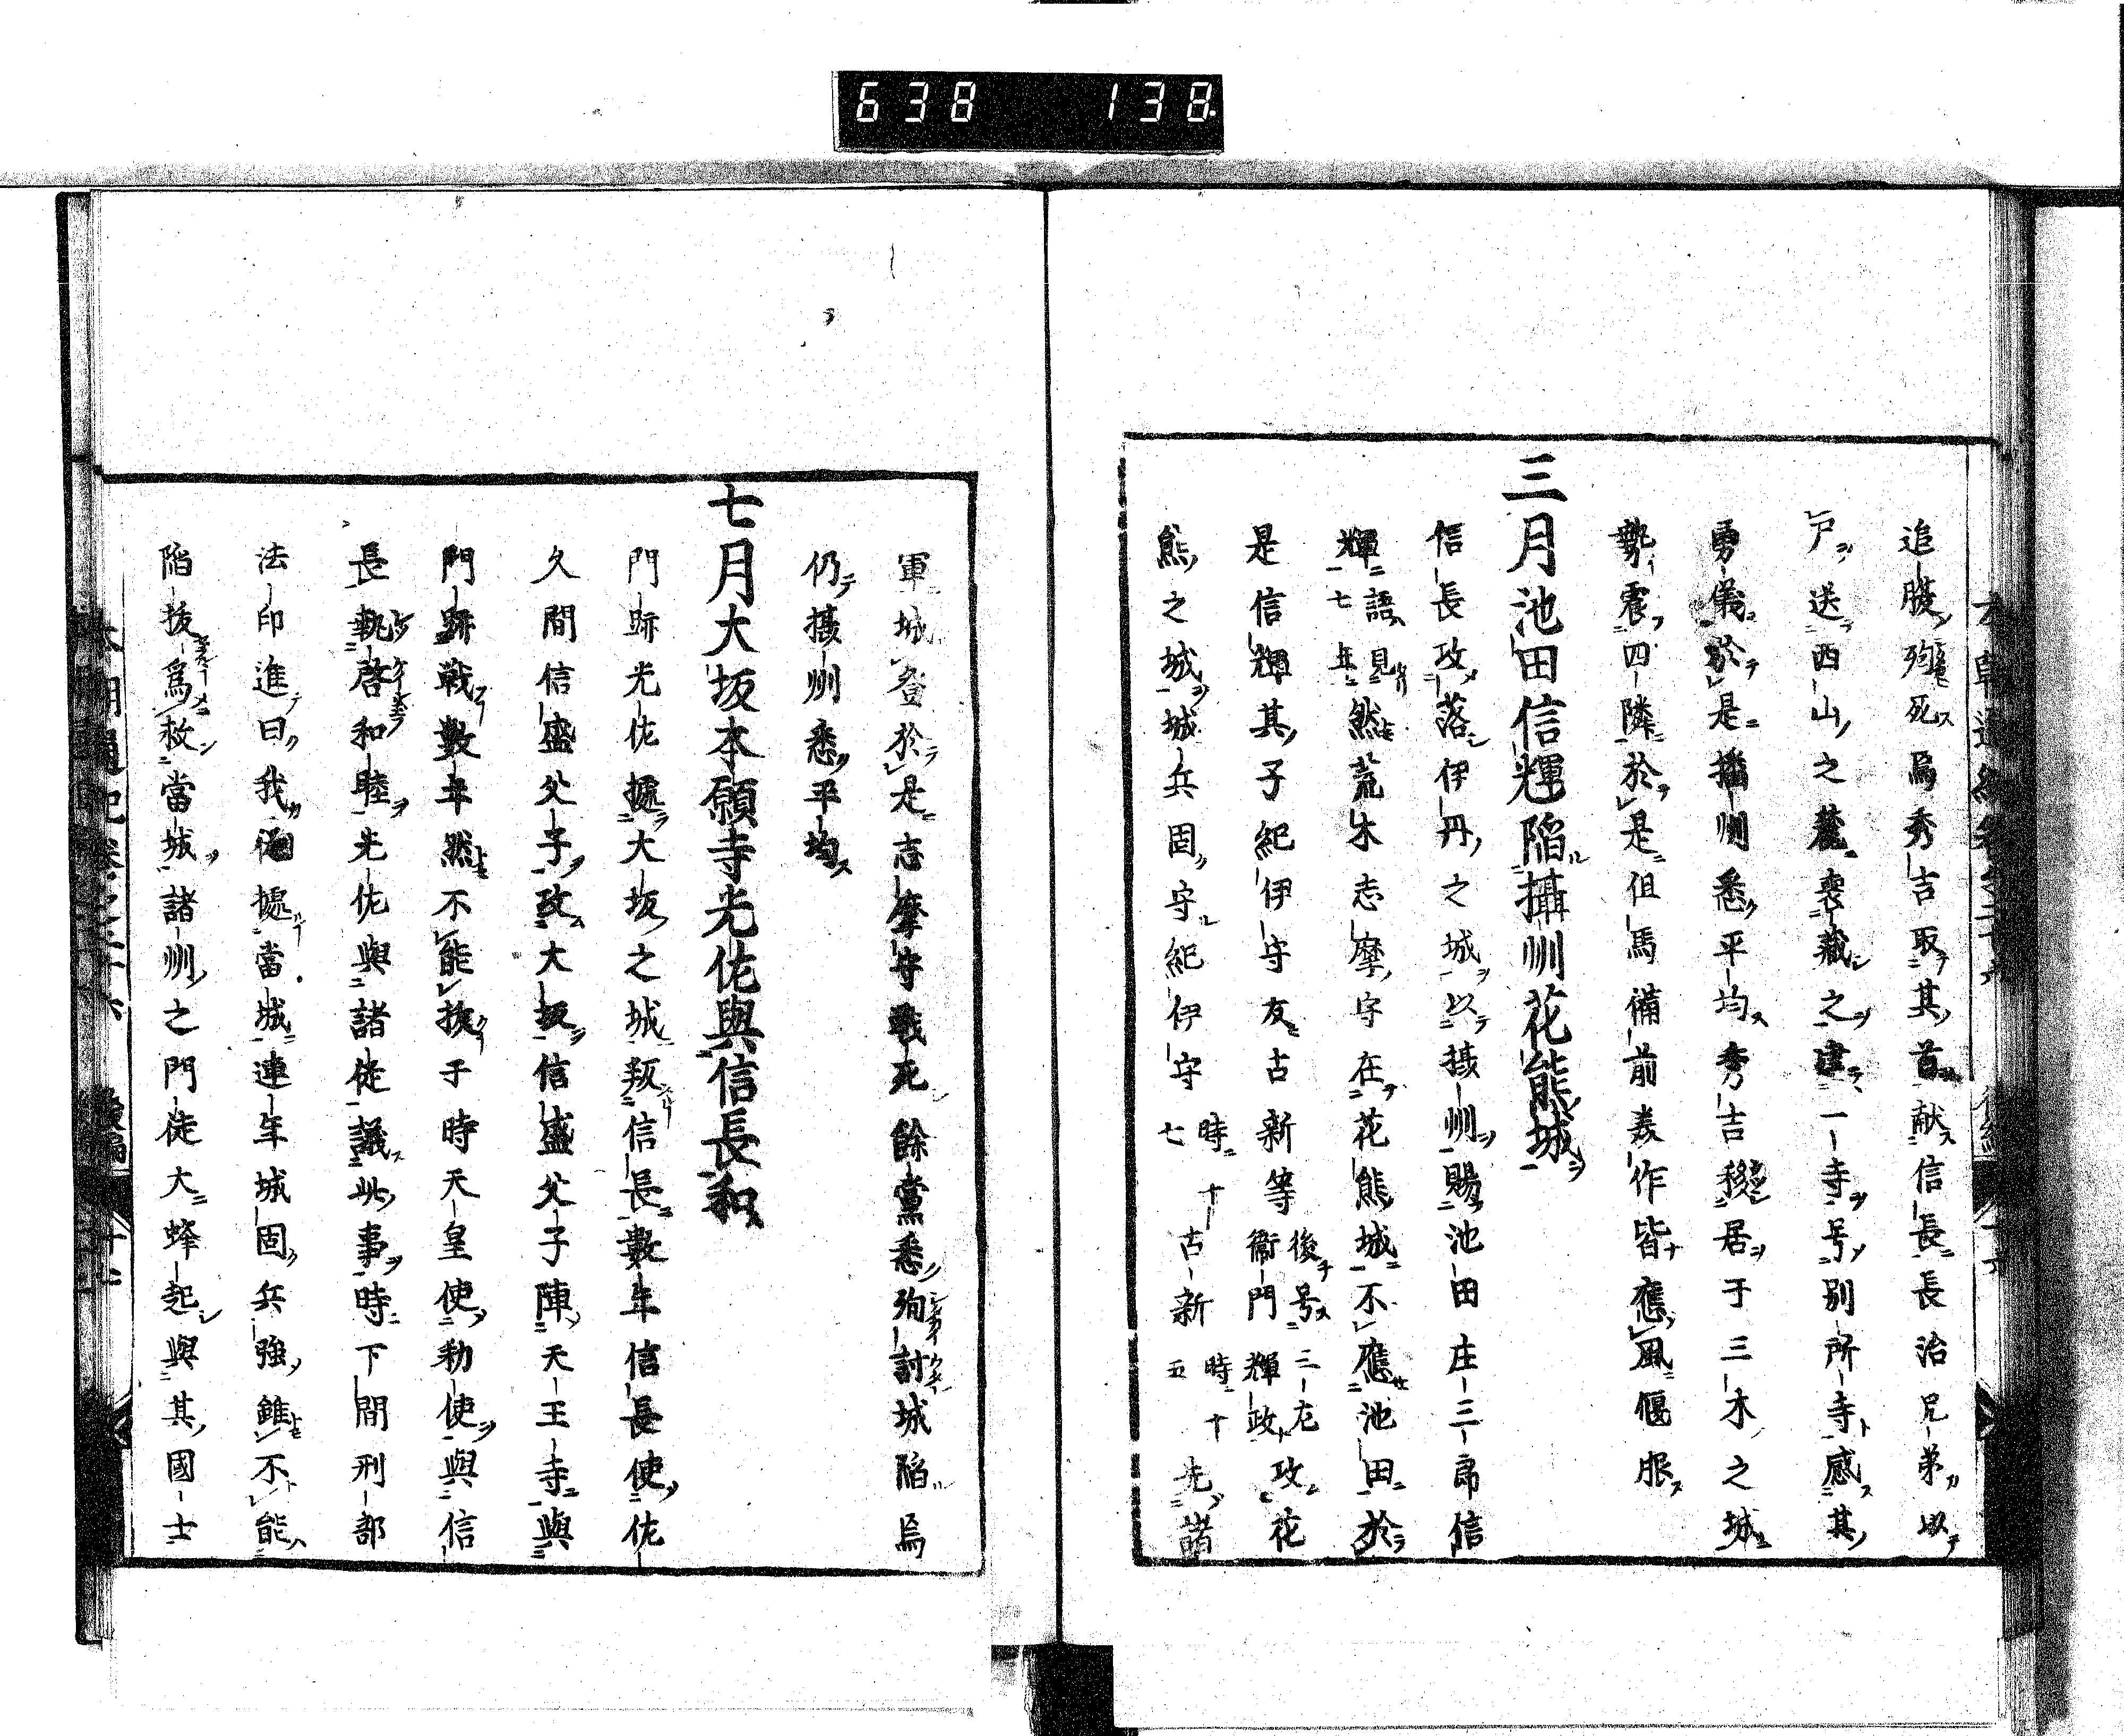 638 138
追腹殉死焉秀吉取其首献信長長治兄弟以
戸送西山之麓喪藏之建一寺号別所寺感其
勇儀於是播州悉平均秀吉移居于三木之城
勢震四隣於是但馬備前美作皆應風偃服
三月池田信輝陥攝州花熊城
信長攻落伊丹之城以摂州賜池田庄三郎信
輝語見七年然荒木志摩守在花熊城不應池田於
是信輝其子紀伊守友古新等後号三左衞門輝政攻花
熊之城城兵固守紀伊守時十七古新時十五先諸
軍城登於是志摩守戰死餘黨悉殉討城陥焉
仍摂州悉平均
七月大坂本願寺光佐與信長和
門跡光佐據大坂之城叛信長數年信長使佐
久間信盛父子攻大坂信盛父子陣天王寺與
門跡戦數年然不能抜于時天皇使勅使與信
長執啓和睦光佐與諸徒議此事時下間刑部
法印進曰我據當城連年城固兵強雖不能
陥抜爲救當城諸州之門徒大蜂起與其國士